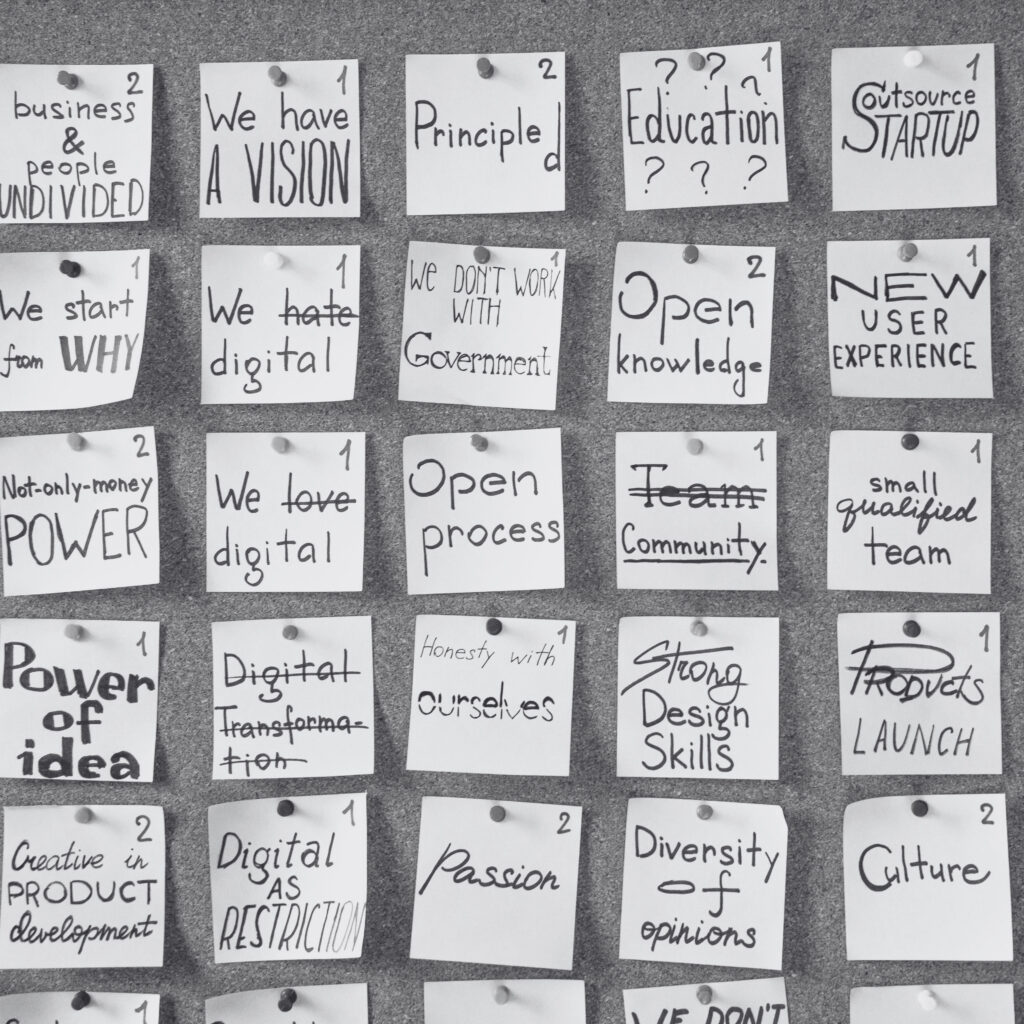 2
business
&
people
UNDIVIDED
1
We have
A VISION
2
Principled
1
? ? ?
Education
? ? ?
1
Outsource
STARTUP
1
We start
from WHY
1
We hate
digital
1
WE DON'T WORK
WITH
Government
2
Open
knowledge
1
NEW
USER
EXPERIENCE
2
Not-only-money
POWER
1
We love
digital
Open
process
1
Team
Community.
1
small
qualified
team
1
Power
of
idea
Digital
Transforma-
tion
1
Honesty with
ourselves
Strong
Design
Skills
1
Products
LAUNCH
2
Creative in
PRODUCT
development
1
Digital
AS
RESTRICTION
2
Passion
Diversity
of
opinions
2
Culture
1
WE DON'T